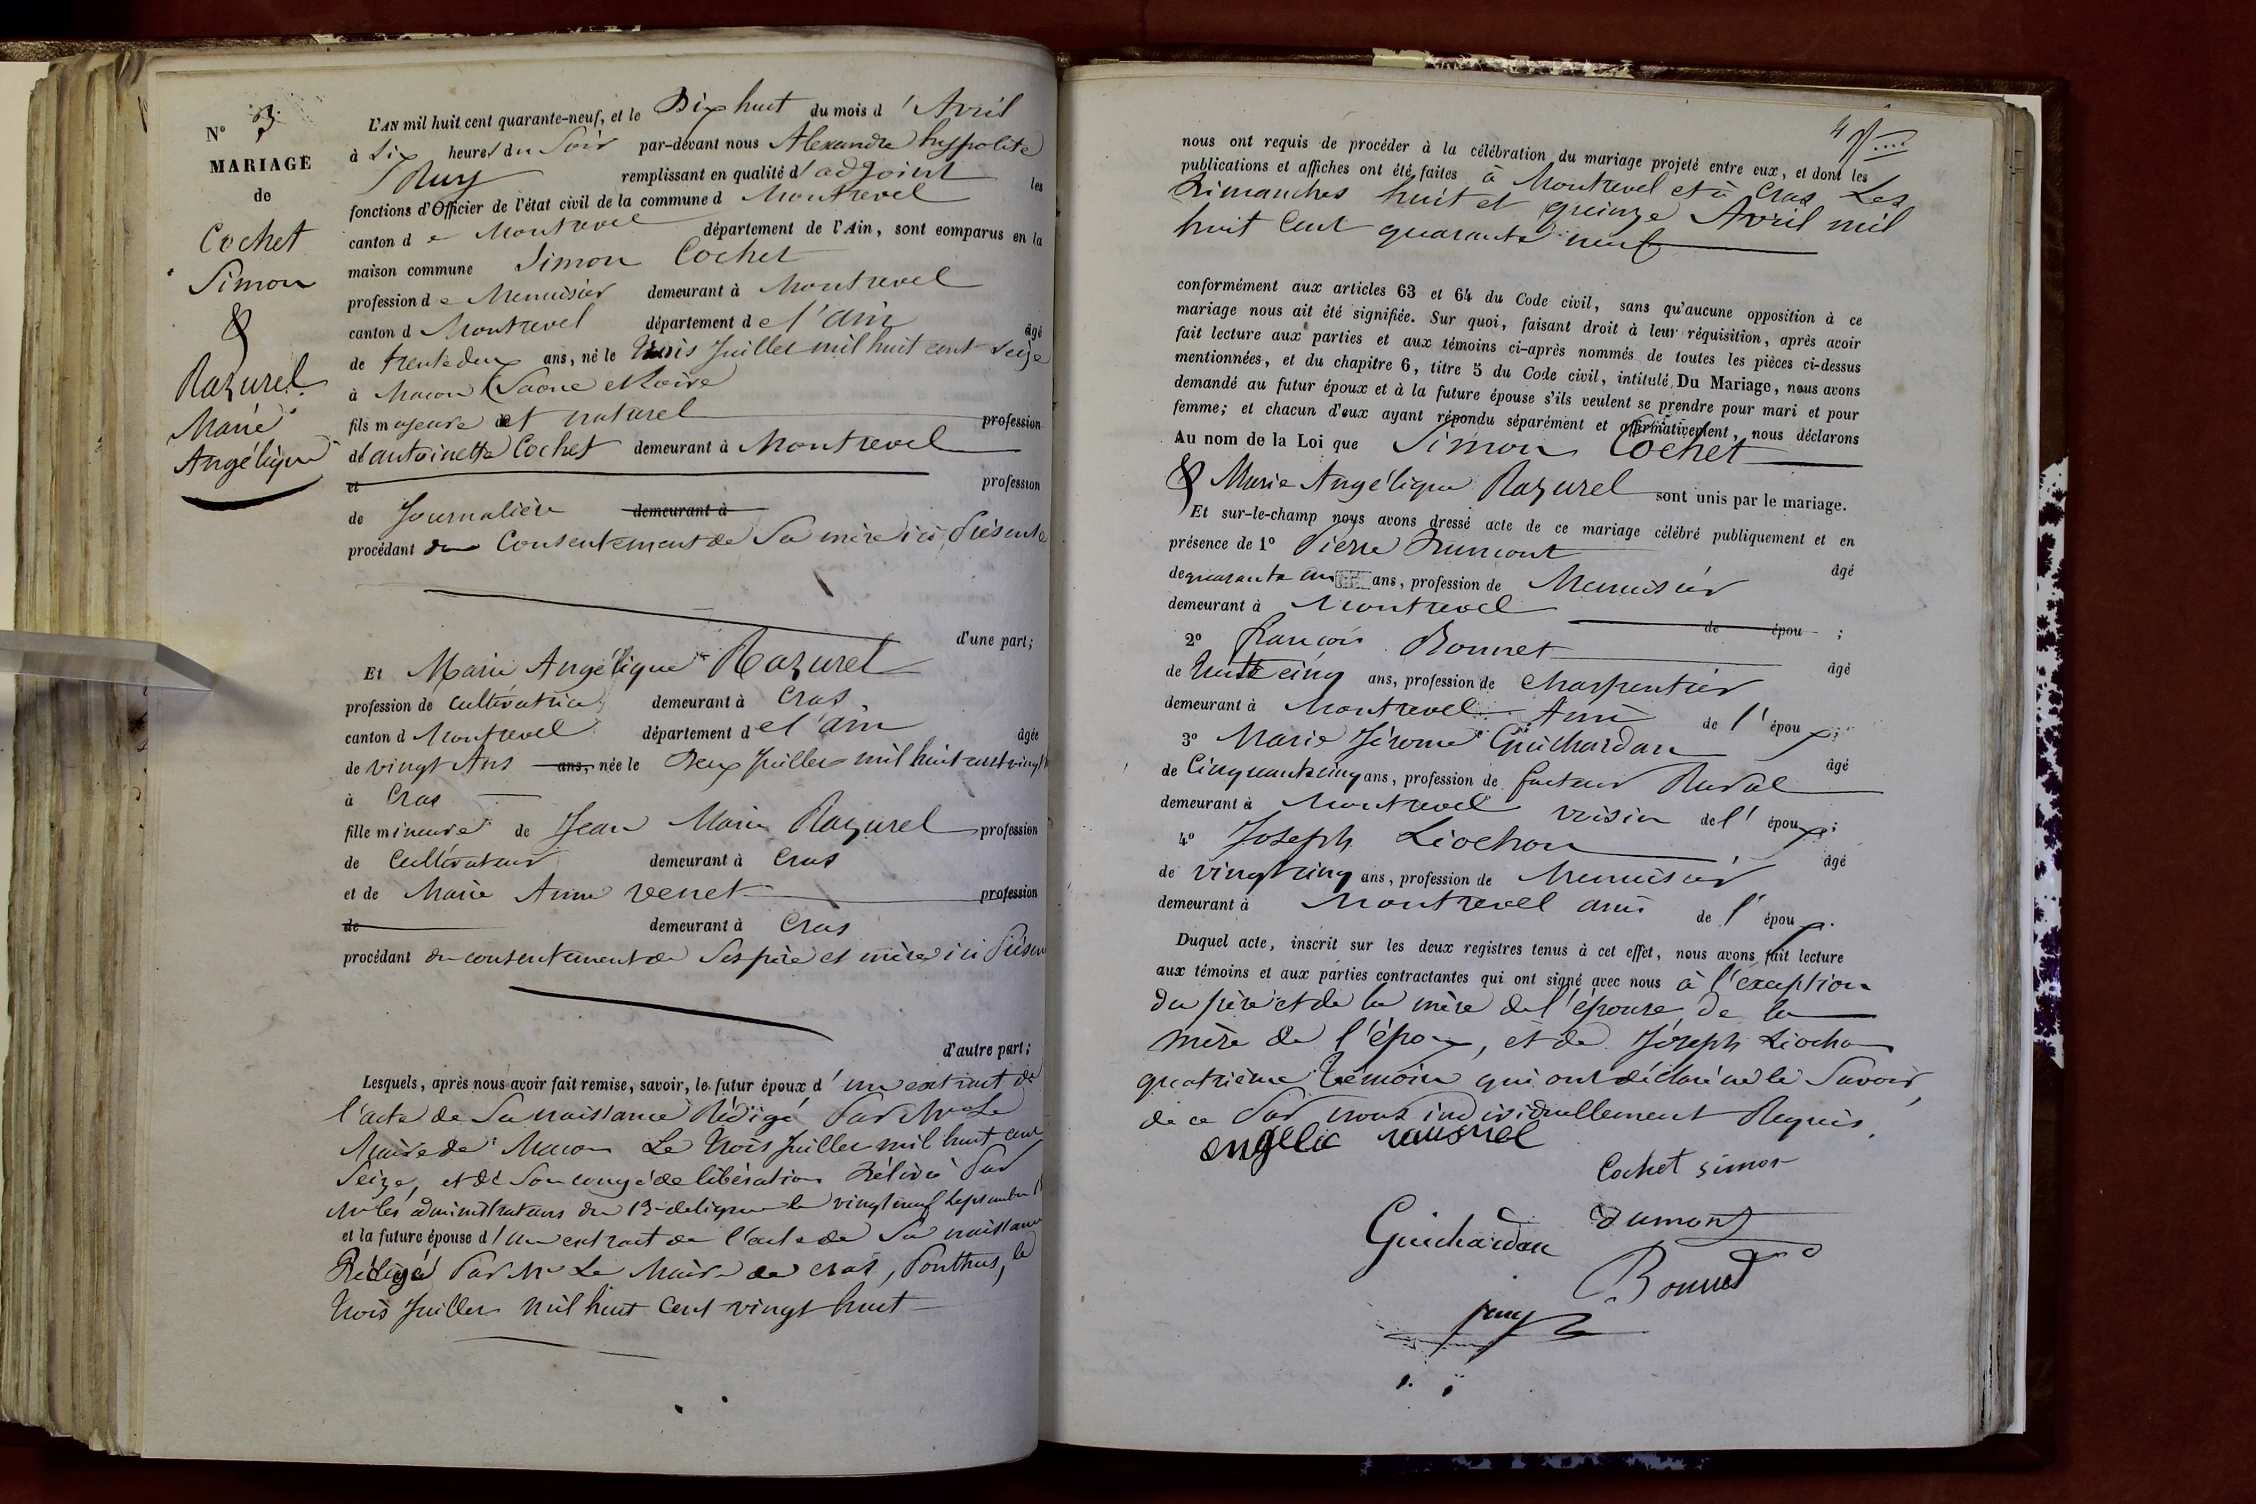 N° 3
MARIAGE
de
Cochet
Simon
&
Razurel
Marie
Angélique
L'AN mil huit cent quarante-neuf, et le Dix huit du mois d'Avril
à Six heures du Soir par-devant nous Alexandre hyppolite
Puy remplissant en qualité d'adjoint les
fonctions d'Officier de l'état civil de la commune d Montrevel
canton de Montrevel département de l'Ain, sont comparus en la
maison commune Simon Cochet
profession de Menuisier demeurant à Montrevel
canton d Montrevel département de l'ain âgé
de trente deux ans, né le trois Juillet mil huit cent Seize
à Macon (Saone et Loire
fils majeure et naturel profession
de antoinette Cochet demeurant à Montrevel
et profession
de Journalière demeurant à
procédant du Consentement de Sa mère ici Présente
d'une part;
Et Marie Angélique Razurel
profession de cultivatrice demeurant à Cras
canton d Montrevel département de l'ain âgée
de vingt Ans ans, née le Deux Juillet mil huit cent vingt
à Cras
fille mineure de Jean Marie Razurel profession
de Cultivateur demeurant à Cras
et de Marie Anne Venet profession
de demeurant à Cras
procédant du consentement de Ses père et mère ici Présen
d'autre part;
Lesquels, après nous avoir fait remise, savoir, le futur époux d'un extrait de
l'acte de Sa naissance Rédigé Par Mr Le
Maire de Macon Le trois Juillet mil huit cent
Seize, et de Son congé de libération Délivré Par
Mrs les administrateurs du 13e de ligne le vingt neuf Septembre
et la future épouse d'un extrait de l'acte de Sa naissance
Rédigé Par Mr Le Maire de Cras, Ponthus, le
trois Juillet mil huit Cent vingt huit
4
nous ont requis de procéder à la célébration du mariage projeté entre eux, et dont les
publications et affiches ont été faites à Montrevel et à Cras Les
Dimanches huit et quinze Avril mil
huit Cent quarante neuf
conformément aux articles 63 et 64 du Code civil, sans qu'aucune opposition à ce
mariage nous ait été signifiée. Sur quoi, faisant droit à leur réquisition, après avoir
fait lecture aux parties et aux témoins ci-après nommés de toutes les pièces ci-dessus
mentionnées, et du chapitre 6, titre 5 du Code civil, intitulé Du Mariage, nous avons
demandé au futur époux et à la future épouse s'ils veulent se prendre pour mari et pour
femme; et chacun d'eux ayant répondu séparément et affirmativement, nous déclarons
Au nom de la Loi que Simon Cochet
& Marie Angélique Razurel sont unis par le mariage.
Et sur-le-champ nous avons dressé acte de ce mariage célébré publiquement et en
présence de 1° Pierre Dumont âgé
de quarante un ans, profession de Menuisier
demeurant à Montrevel de épou ;
2° francois Bonnet âgé
de trente cinq ans, profession de Charpentier
demeurant à Montrevel Ami de l'époux;
3° Marie Jérome Guichardan âgé
de Cinquante cinq ans, profession de facteur Rural
demeurant à Montrevel voisin de l'époux;
4° Joseph Liochon âgé
de vingt cinq ans, profession de Menuisier
demeurant à Montrevel ami de l'époux.
Duquel acte, inscrit sur les deux registres tenus à cet effet, nous avons fait lecture
aux témoins et aux parties contractantes qui ont signé avec nous à l'éxception
du père et de la mère de l'épouse, de la
mère de l'époux, et de Joseph Liochon
quatrième témoin qui ont déclaré ne le Savoir,
de ce Par nous individuellement Requis.
Cochet simon
Guichardan
dumont
Bonnet
puy